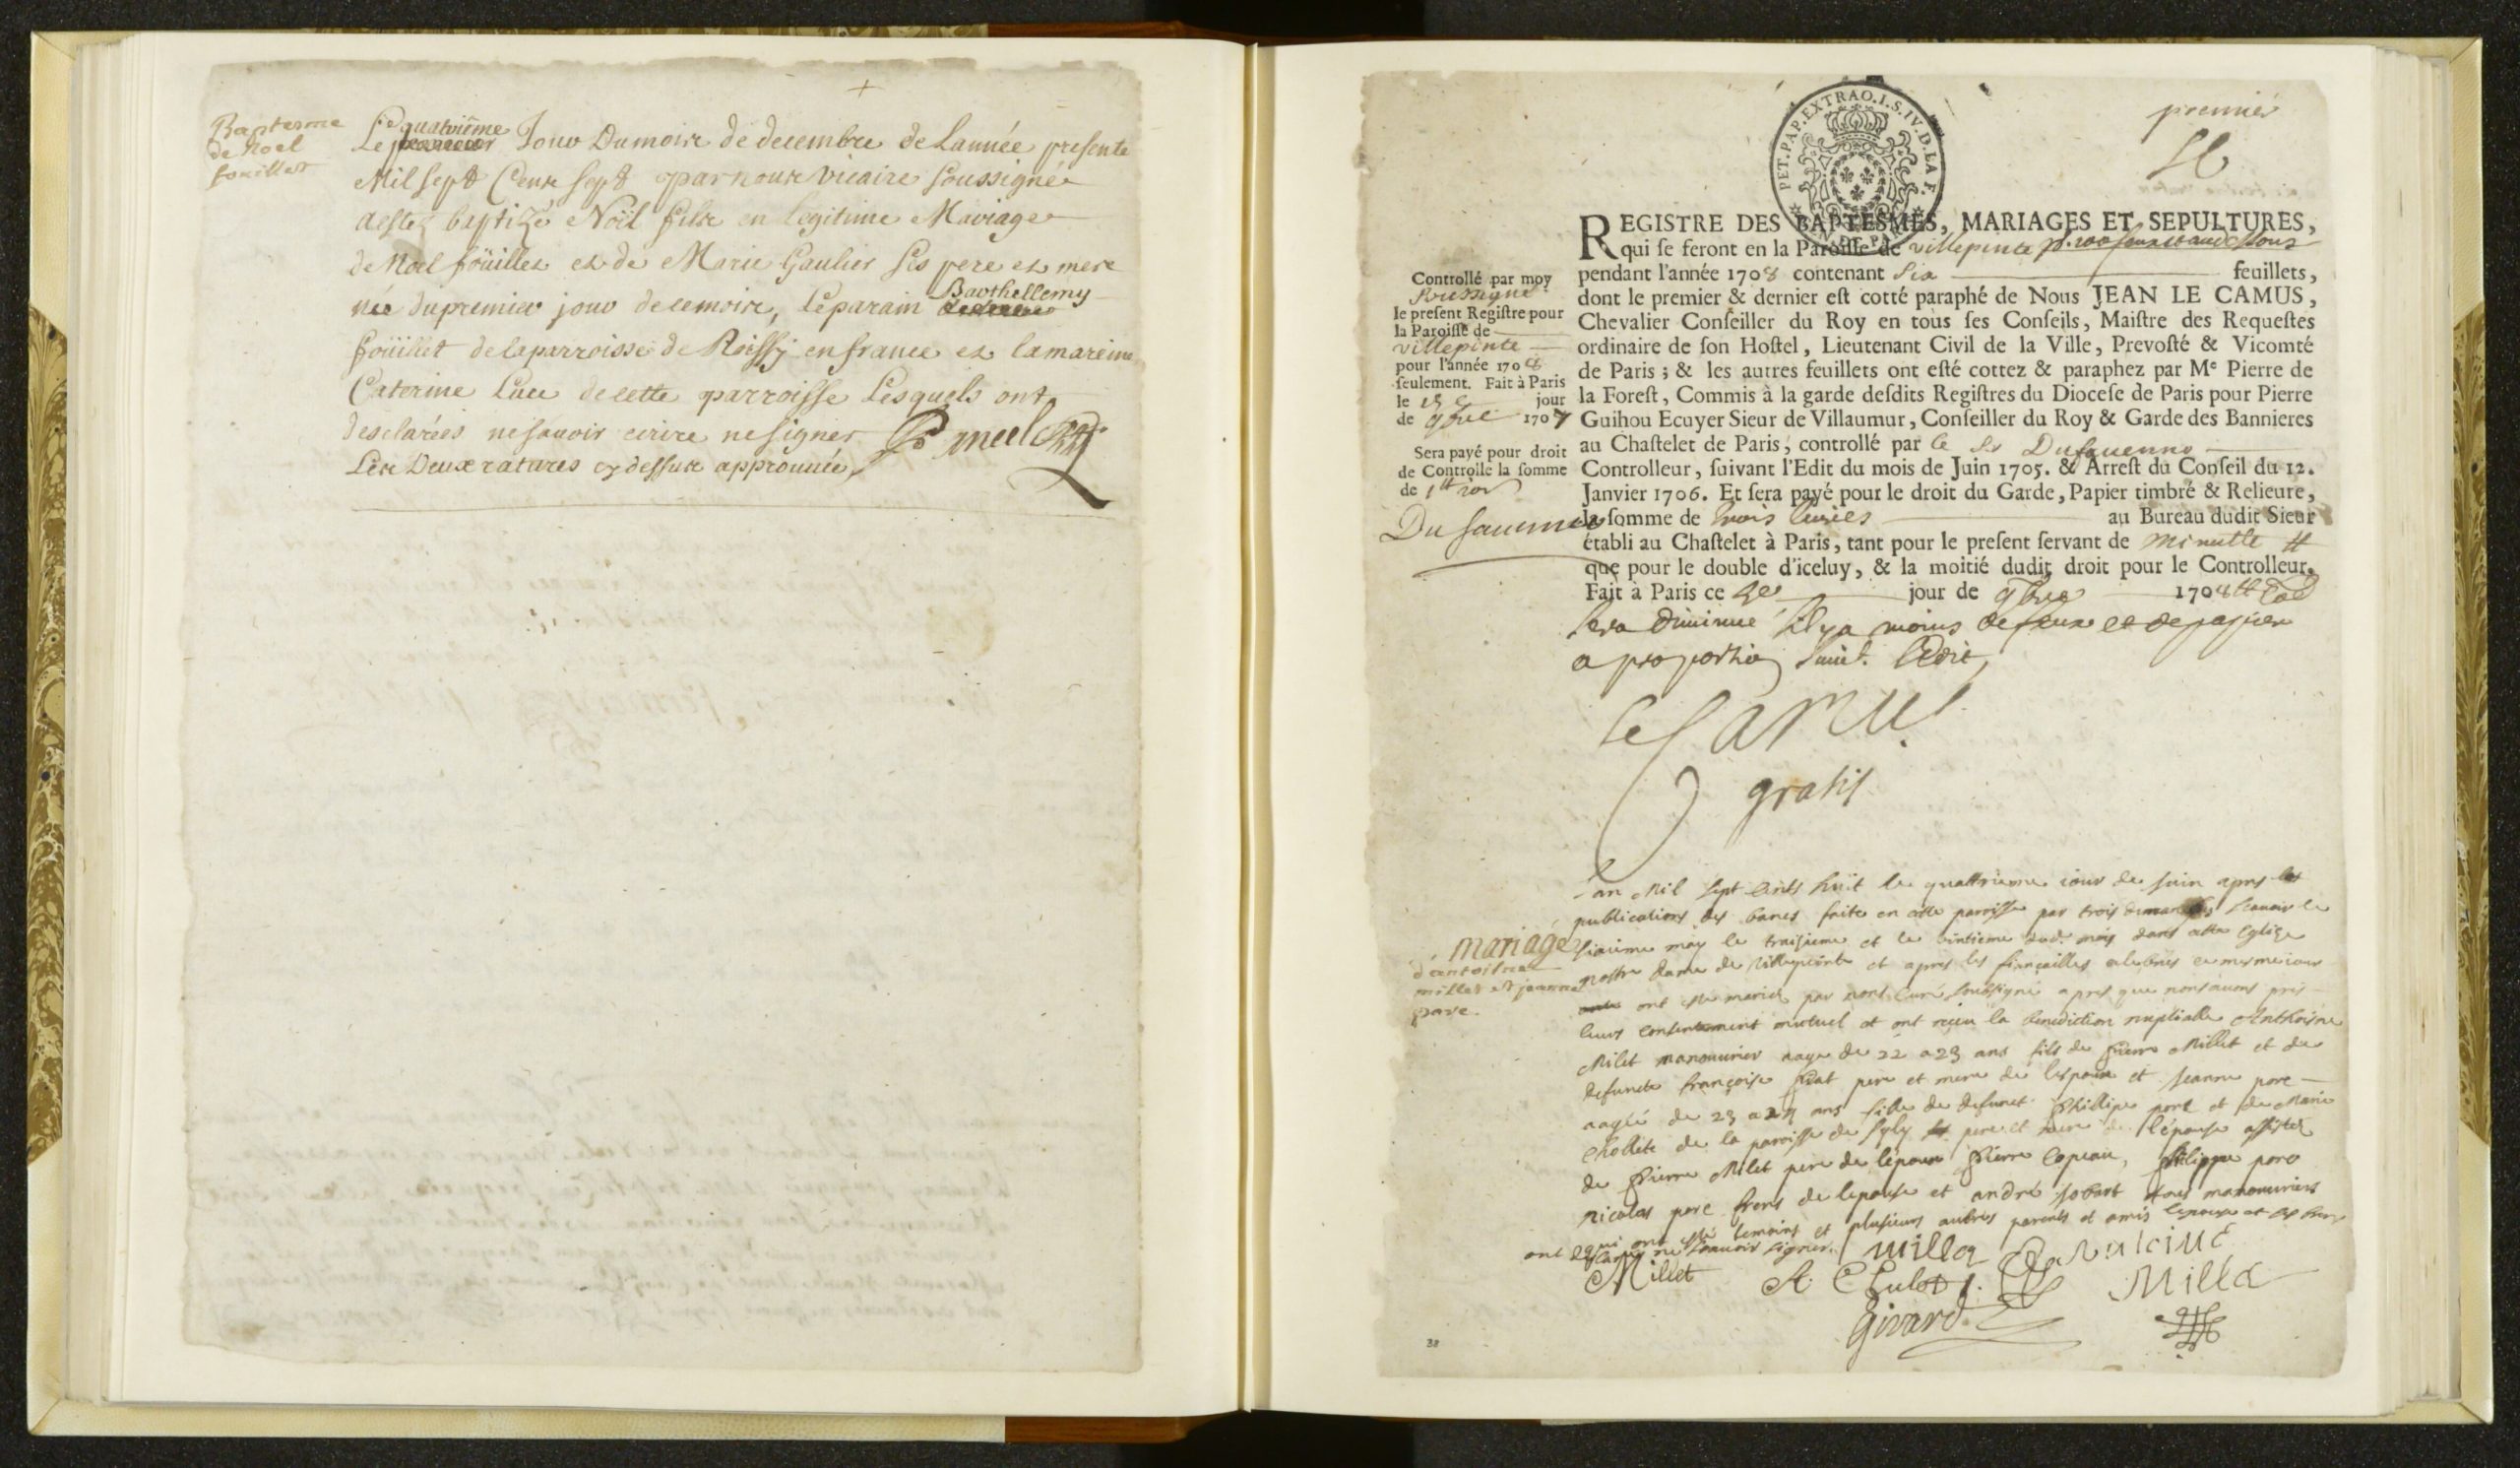 Baptesme
de Noel
fouillet
Le quatriême Jour Du mois de decembre de Lannée presente
Mil sept Cens sept par nous vicaire soussigné
a estez baptizé Noïl fils en legitime Mariage
de Noel foüillet et de Marie Gaulier ses pere et mere
née du premier jour de ce mois, le parain Barthellemy
foüillet de la parroisse de Roissy en france et la mareine
Caterine Luce de cette parroisse Lesquels ont
desclarées ne savoir ecrire ne signer
Les Deux ratures cy dessus approuuée
premier
PET.PAP.EXTRAO.I.S.IV.D.LA F.
REGISTRE DES BAPTESMES, MARIAGES ET SEPULTURES,
qui se feront en la Paroisse de villepinte
pendant l'année 1708 contenant Six feuillets,
dont le premier & dernier est cotté paraphé de Nous JEAN LE CAMUS,
Chevalier Conseiller du Roy en tous ses Conseils, Maistre des Requestes
ordinaire de son Hostel, Lieutenant Civil de la Ville, Prevosté & Vicomté
de Paris; & les autres feuillets ont esté cottez & paraphez par Me Pierre de
la Forest, Commis à la garde desdits Registres du Diocese de Paris pour Pierre
Guihou Ecuyer Sieur de Villaumur, Conseiller du Roy & Garde des Bannieres
au Chastelet de Paris, controllé par le Sr
Controlleur, suivant l'Edit du mois de Juin 1705. & Arrest du Conseil du 12.
Janvier 1706. Et sera payé pour le droit du Garde, Papier timbré & Relieure,
la somme de trois livres au Bureau dudit Sieur
établi au Chastelet à Paris, tant pour le present servant de minutte
que pour le double d'iceluy, & la moitié dudit droit pour le Controlleur.
Fait à Paris ce jour de 9bre 170
sera diminué s'il y a moins de feux et de papier
a proportion suiut. l'Edit
Le Camus
gratis
Controllé par moy
soussigné
le present Registre pour
la Paroisse de
villepinte
pour l'année 1708
seulement. Fait à Paris
le jour
de 9bre 1707
Sera payé pour droit
de Controlle la somme
de
mariage
d'antoine
millet et jeanne
pore.
L'an Mil sept cents huit le quattrieme iour de Juin apres les
publications des bancs faite en cette paroisse par trois dimanches scauoir le
sixieme may le traisieme et le vintieme dud. mois dans cette Eglise
nostre dame de Villepinte et apres les fiançailles celebrés ce mesme iour
ont esté mariés par nous Curé soubsigné apres que nous auons pris
leurs consentement mutuel et ont reçeu la benediction nuptialle Anthoine
Milet manouurier aagé de 22 a 23 ans fils de Pierre Millet et de
defuncte françoise pere et mere de lespoux et Jeanne pore
aagée de 23 a 24 ans fille de defunct Phillipe pore et de Marie
de la paroisse de pere et mere de l'épouse assistez
de Pierre Milet pere de lépoux Pierre Copeau, Philippe pore
nicolas pore freres de lepouse et andré Jobart tous manouuriers
qui ont esté temoins et plusieurs autres parents et amis lepouse et ses freres
ont declaré ne scauoir signer.
Millet
Girard